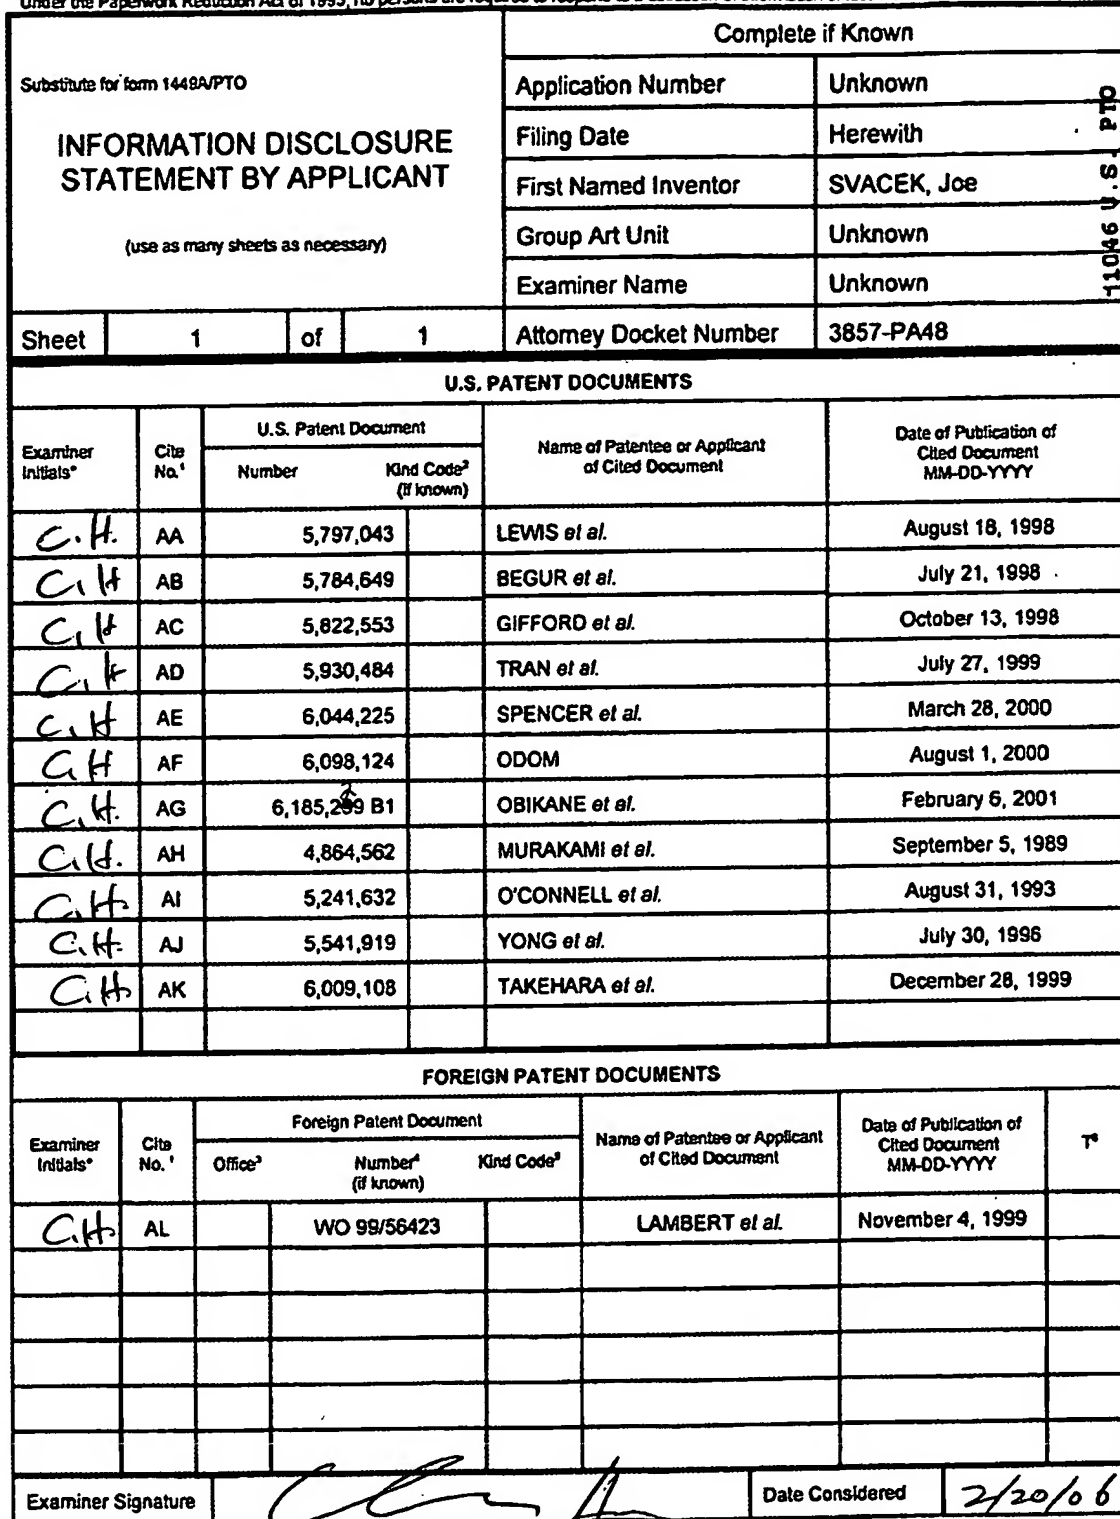 Under the Paperwork Reduction Act of 1995, no persons are required to respond to a collection of information
Substitute for form 1449A/PTO
INFORMATION DISCLOSURE
STATEMENT BY APPLICANT
(use as many sheets as necessary)
Sheet 1 of 1
Complete if Known
Application Number Unknown
Filing Date Herewith
First Named Inventor SVACEK, Joe
Group Art Unit Unknown
Examiner Name Unknown
Attorney Docket Number 3857-PA48
11046 U.S. PTO
U.S. PATENT DOCUMENTS
Examiner Initials* Cite No.¹ U.S. Patent Document Number Kind Code² (if known) Name of Patentee or Applicant of Cited Document Date of Publication of Cited Document MM-DD-YYYY
C.H. AA 5,797,043 LEWIS et al. August 18, 1998
C.H AB 5,784,649 BEGUR et al. July 21, 1998
C.H AC 5,822,553 GIFFORD et al. October 13, 1998
C.H AD 5,930,484 TRAN et al. July 27, 1999
C.H AE 6,044,225 SPENCER et al. March 28, 2000
C.H AF 6,098,124 ODOM August 1, 2000
C.H. AG 6,185,299 B1 OBIKANE et al. February 6, 2001
C.H. AH 4,864,562 MURAKAMI et al. September 5, 1989
C.H. AI 5,241,632 O'CONNELL et al. August 31, 1993
C.H. AJ 5,541,919 YONG et al. July 30, 1996
C.H. AK 6,009,108 TAKEHARA et al. December 28, 1999
FOREIGN PATENT DOCUMENTS
Examiner Initials* Cite No.¹ Foreign Patent Document Office³ Number⁴ (if known) Kind Code⁵ Name of Patentee or Applicant of Cited Document Date of Publication of Cited Document MM-DD-YYYY T⁶
C.H. AL WO 99/56423 LAMBERT et al. November 4, 1999
Examiner Signature Date Considered 2/20/06